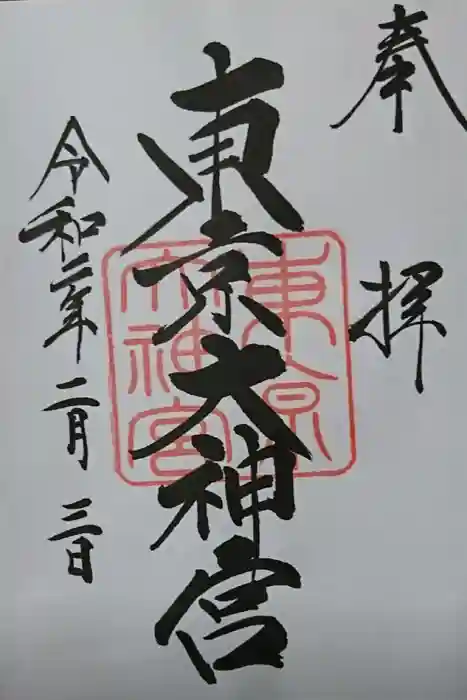 奉拝
東京大神宮
東京大神宮
令和二年二月三日